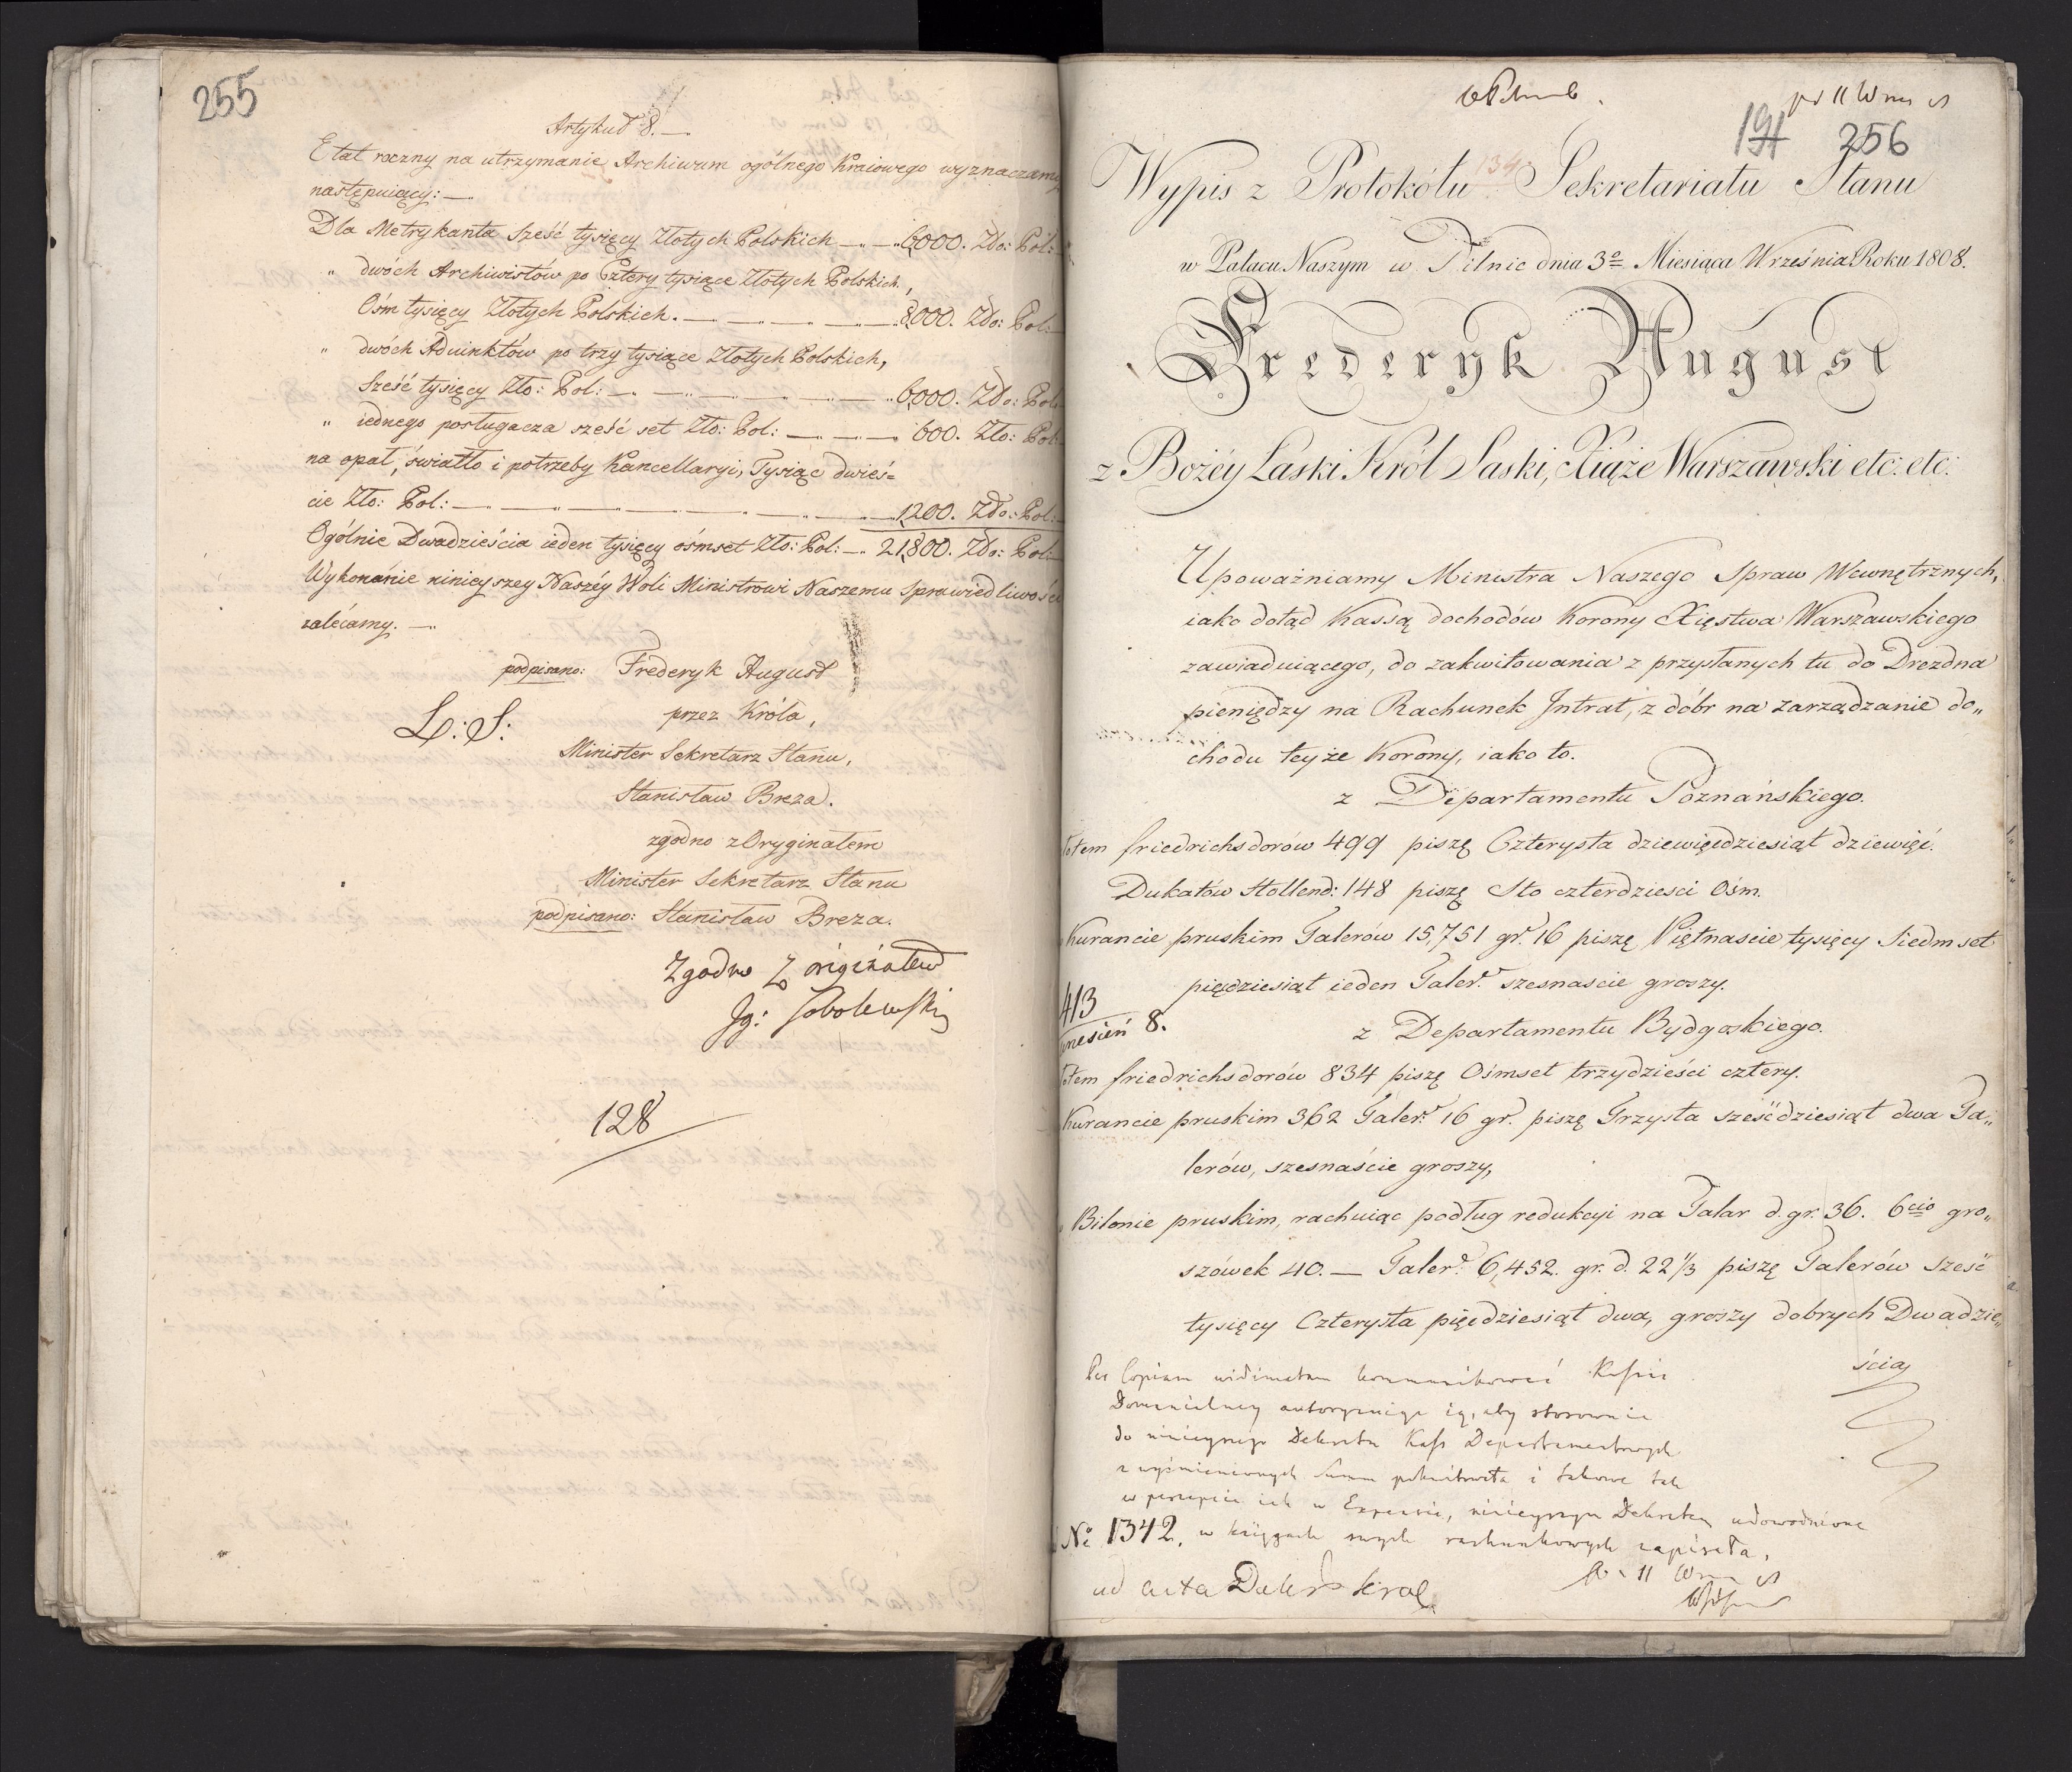 255
Artykuł 8. —
Etat roczny na utrzymanie Archiwum ogólnego Kraiowego wyznaczamy
następuiący: —
Dla Metrykanta sześć tysięcy Złotych Polskich — „ — „ 6,000. Zło: Pol:
„ dwóch Archiwistów po Cztery tysiące Złotych Polskich,
Ośm tysięcy Złotych Polskich. — „ — „ — „ — „ 8,000. Zło: Pol:
„ dwóch Aduinktów po trzy tysiące Złotych Polskich,
Sześć tysięcy Zło: Pol: — „ — „ — „ — „ 6,000. Zło: Pol:
„ iednego posługacza sześć set Zło: Pol: — „ — „ — 600. Zło: Pol:
na opał, światło i potrzeby Kancellaryi, Tysiąc dwieś=
cie Zło: Pol: — „ — „ — „ — „ — „ 1,200. Zło: Pol:
Ogólnie Dwadzieścia ieden tysięcy ośmset Zło: Pol: — „ 21,800. Zło: Pol:
Wykonanie ninieyszey Naszéy Woli Ministrowi Naszemu Sprawiedliwości
zalécamy. —
podpisano: Frederyk August
L: S: przez Króla,
Minister Sekretarz Stanu,
Stanisław Breza.
zgodno z Oryginałem
Minister Sekretarz Stanu
podpisano: Stanisław Breza.
Zgodno z originałem
Ig: Sobolewski
128
11 Wrzes
191 256
134
Wypis z Protokółu Sekretariatu Stanu
w Pałacu Naszym w Pilnic dnia 3º Miesiąca Września Roku 1808.
Frederyk August
z Bożéy Łaski Król Saski, Xiąże Warszawski etc: etc:
Upoważniamy Ministra Naszego Spraw Wewnętrznych,
iako dotąd Kassą dochodów Korony Xięstwa Warszawskiego
zawiaduiącego, do zakwitowania z przysłanych tu do Drezdna
pieniędzy na Rachunek Intrat, z dóbr na zarządzanie do„
chodu teyże Korony, iako to.
z Departamentu Poznańskiego.
łotem friedrichsdorów 499 piszę Czterysta dziewięćdziesiąt dziewięć.
Dukatów Hollend: 148 piszę Sto czterdziesci Ośm.
Kurancie pruskim Talerów 15,751 gr. 16 piszę Piętnascie tysięcy Siedm set
pięćdziesiąt ieden Taler. szesnascie groszy.
413
wrzesień 8.
z Departamentu Bydgoskiego.
łotem friedrichsdorów 834 piszę Ośmset trzydzieści cztery.
Kurancie pruskim 362 Taler: 16 gr. piszę Trzysta sześćdziesiąt dwa Ta„
lerów, szesnaście groszy,
Bilonie pruskim, rachuiąc podług redukcyi na Talar d. gr. 36. 6cio gro„
szówek 40. — Taler. 6,452. gr. d. 22 1/3 piszę Talerów sześć
tysięcy Czterysta pięćdziesiąt dwa, groszy dobrych Dwadzie„
ścia
Per Copiam vidimatam kommunikować Kassie
Dominialney autoryzuiąc ią, aby stosownie
do ninieyszego Dekretu Kass Departamentowych
z wyśmienionych Summ pokwitowała i takowe tak
w percepcie iak w Expensie, ninieyszym Dekretem udowodnione
No 1342. w księgach swych rachunkowych zapisała.
11 Wrzes
ad acta Dekr: Król.